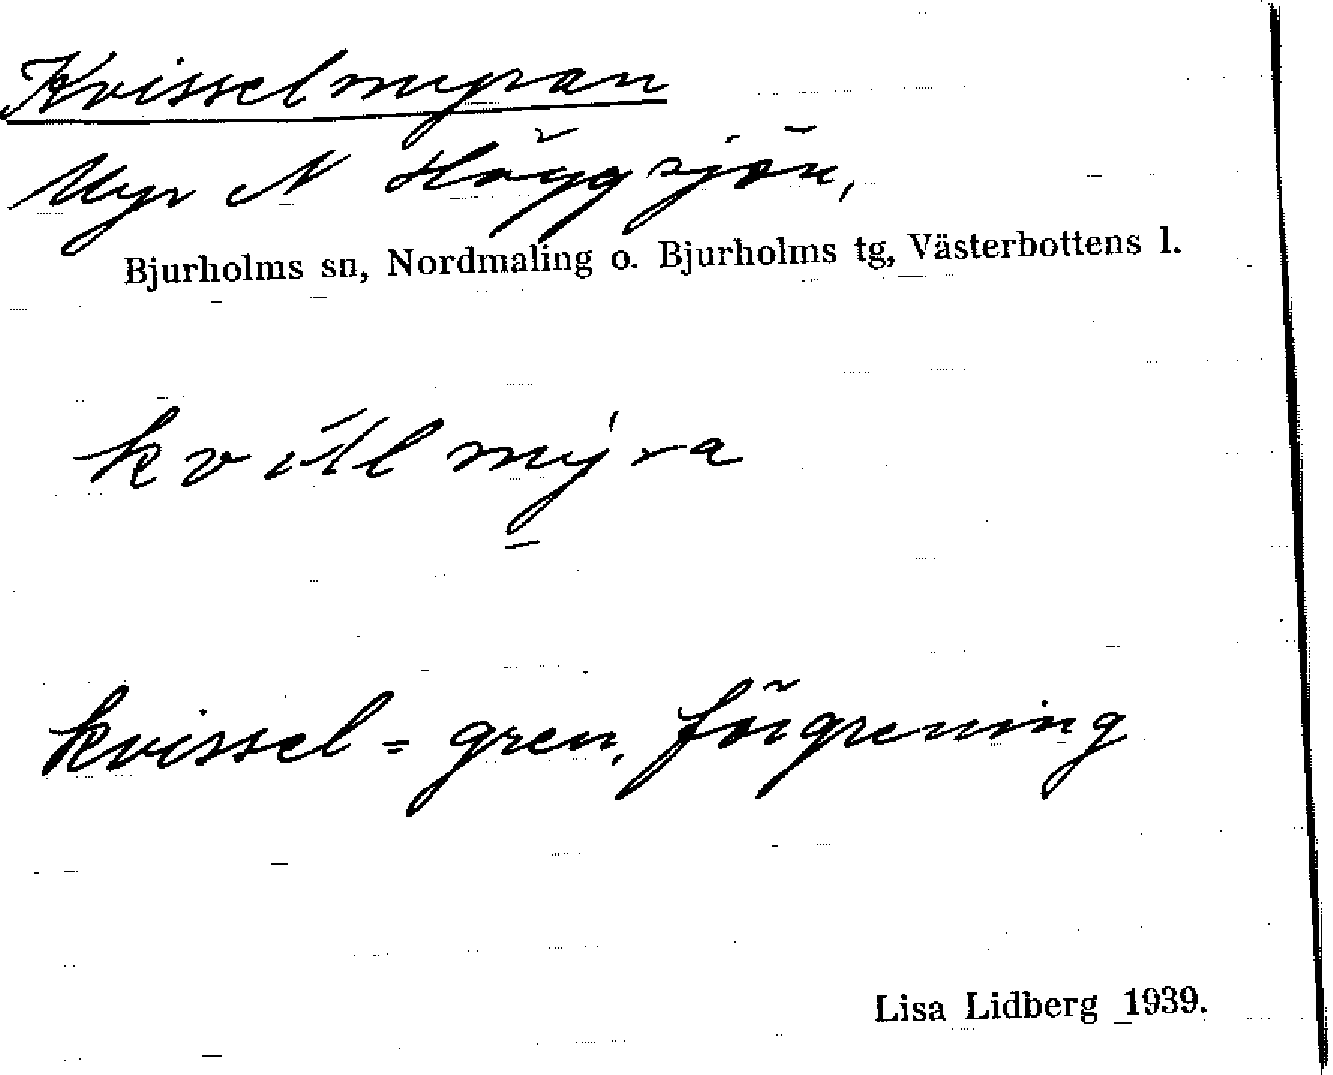 Kvisselmyran
Myr N Häggsjön,
Bjurholms sn, Nordmaling o. Bjurholms tg, Västerbottens l.
kvissel = gren, förgrening
Lisa Lidberg 1939.